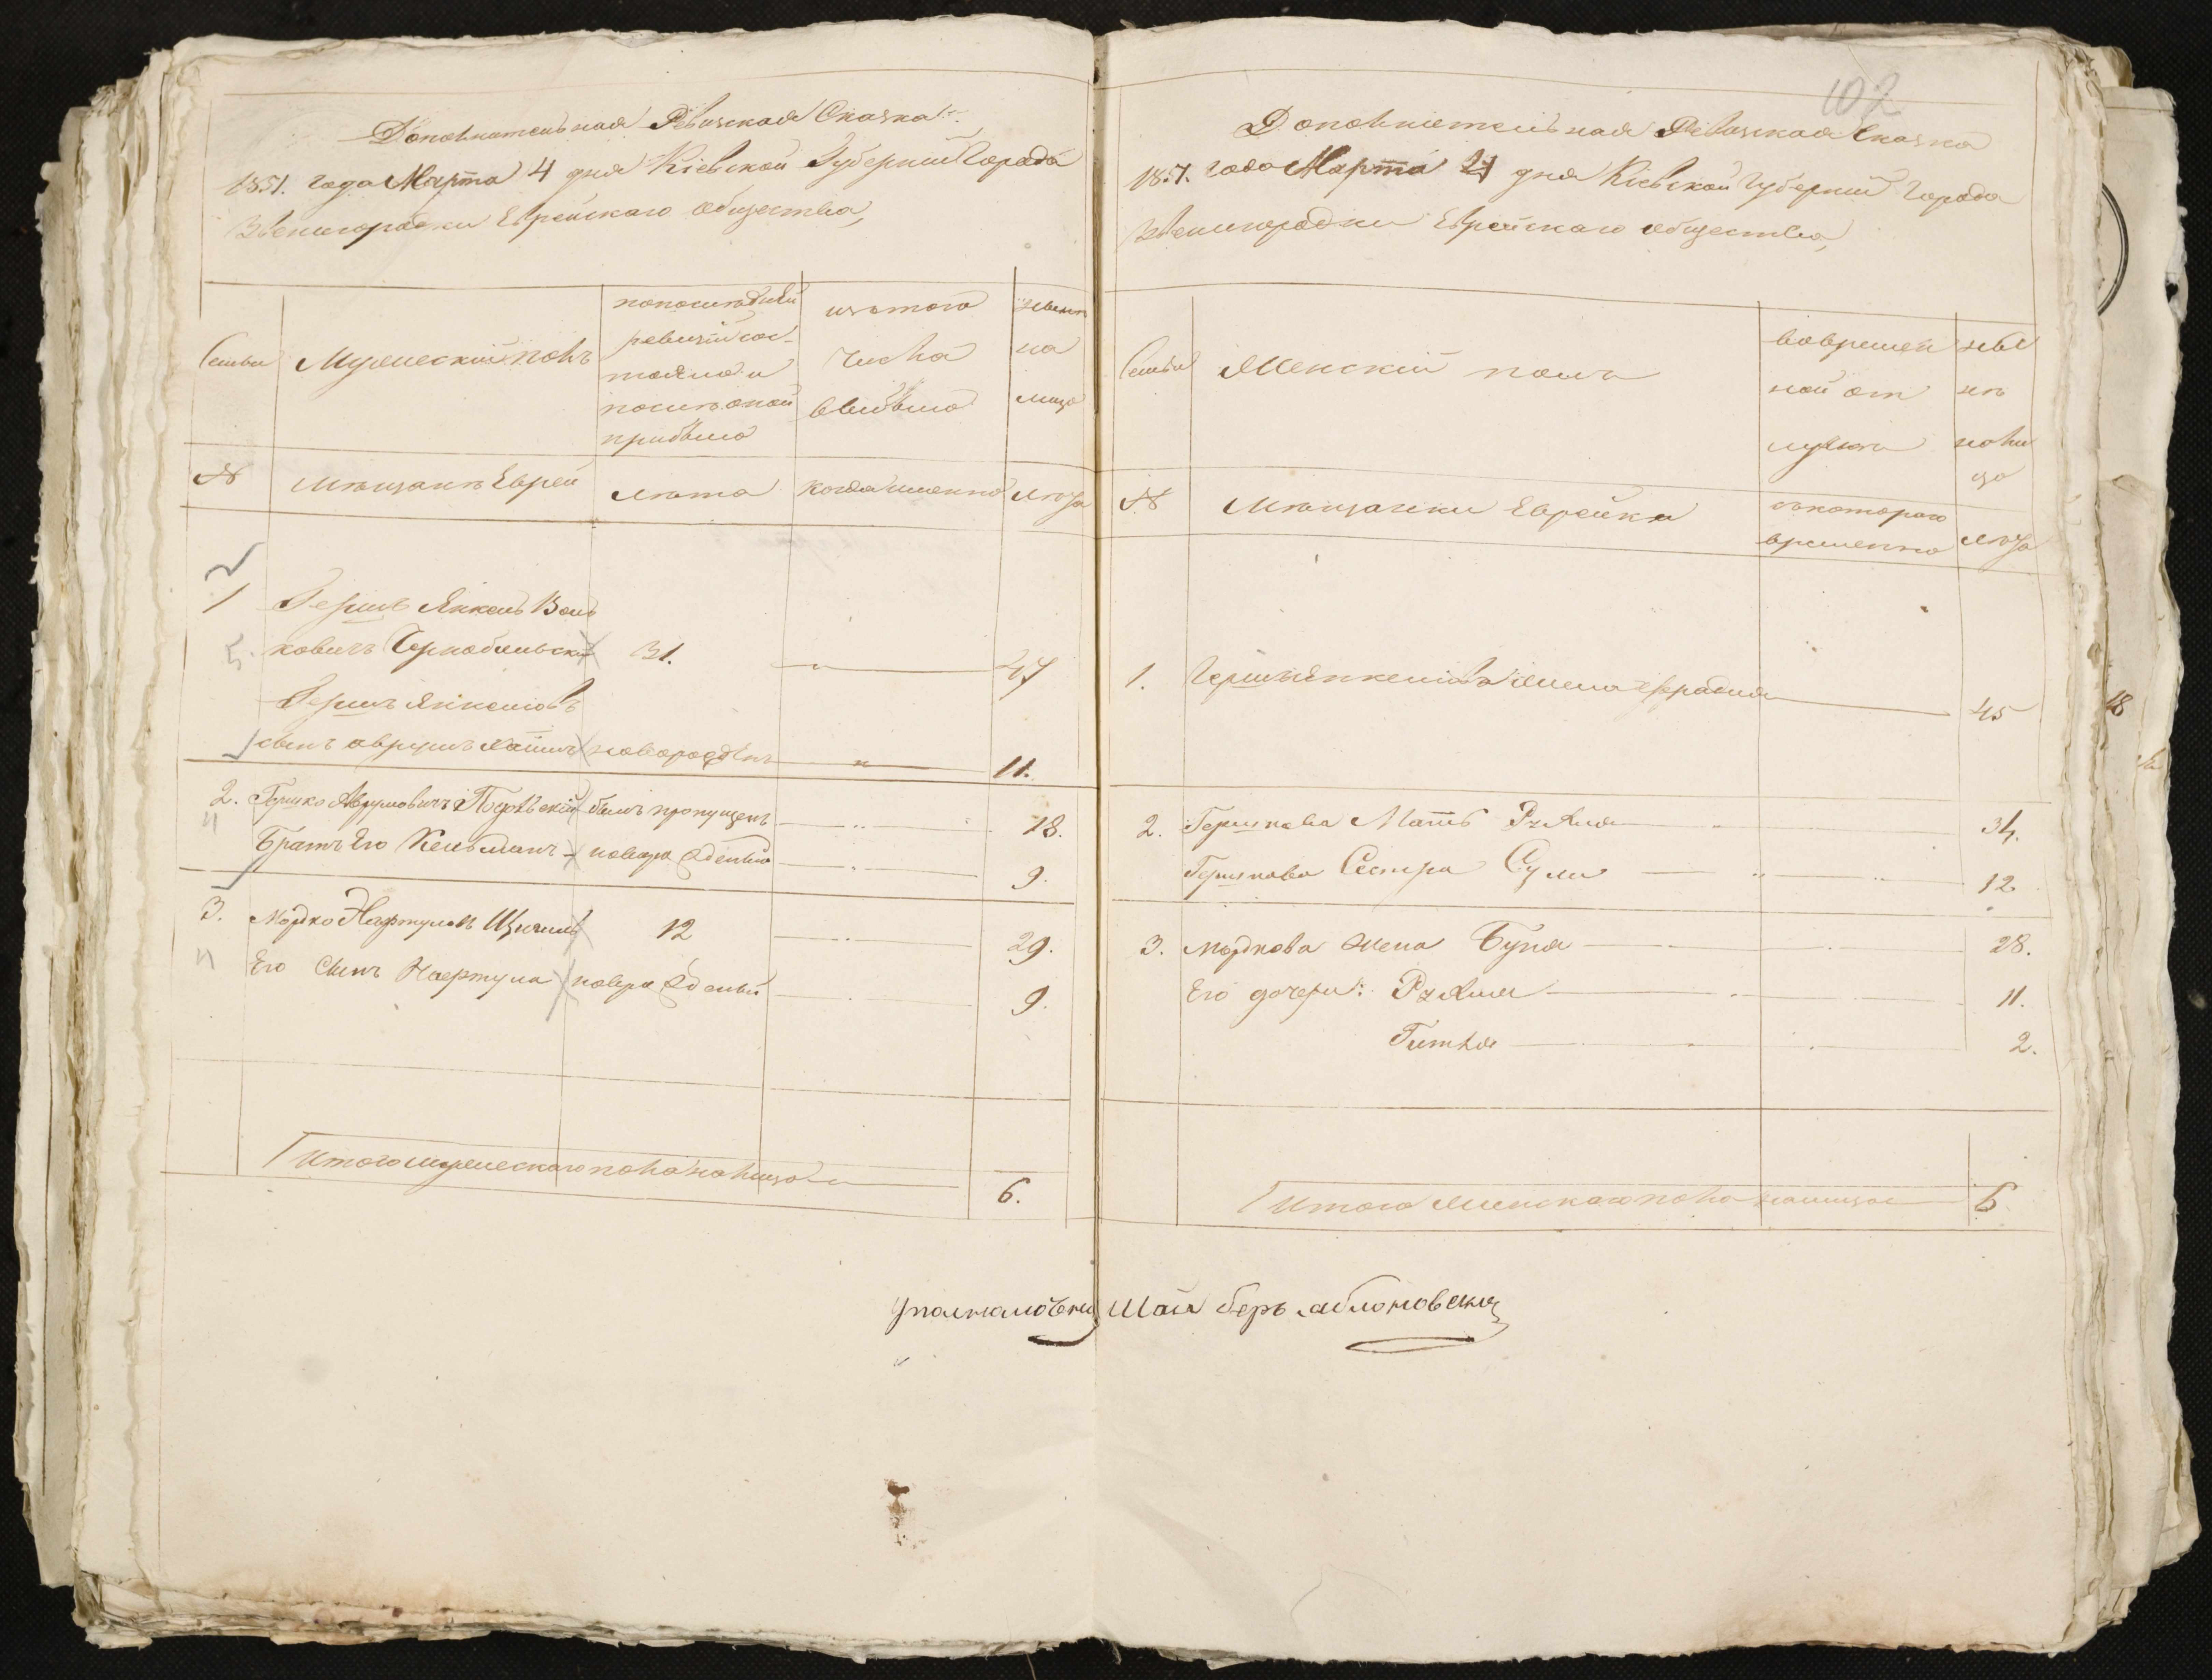 Дополнительная Ревизская Сказка
1851. года Марта 4 дня Кіевской Губерніи Города
Звенигородки Еврейскаго общества,
Семьи
Мужескій полъ
попоследней
ревизіи сос-
тояло и
после оной
прибыло
изътого
числа
выбыло
ныне
на
лицо
№
Мещанъ Еврей
лета
когда именно
лета
1
Гершъ Янкель Воль
ковичъ Чернобыльскій
31.
47
Гершъ Янкелевъ
сынъ аврумъ
новорожденъ
11.
2. Гершко Аврумовичъ Подольскій былъ пропущенъ
18.
Братъ Его Кельманъ новорожденый
9.
3. Мордко Нафтуловъ
12
29.
Его Сынъ Нафтула новорожденый
9.
Итого мужескаго пола налицо
6.
102
Дополнительная Ревизская Сказка
185. года Марта 4 дня Кіевской Губерніи Города
Звенигородки Еврейскаго общества,
Семьи
Женскій полъ
вовремен
ной от
лучке
ны
не
нали
цо
№
Мещанки Еврейки
скотораго
временно
лета
1. Гершъ Янкелева жена
45
2. Гершкова Мать
34.
Гершкова Сестра
12
3. Мордкова Жена Буня
28.
Его дочери:
11.
Гитля
2.
Итого Женскаго пола налицо
6
Шая беръ аблоновский